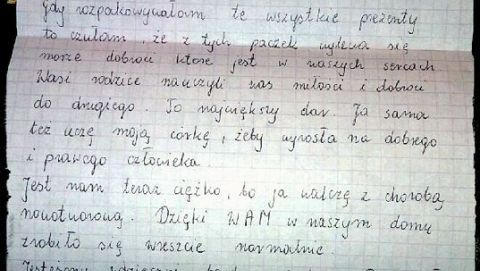 Gdy rozpakowywałam te wszystkie prezenty
to czułam, że z tych paczek wylewa się
morze dobroci które jest w waszych sercach
Wasi rodzice nauczyli was miłości i dobroci
do drugiego. To największy dar. Ja sama
też uczę moją córkę, żeby wyrosła na dobrego
i prawego człowieka.
Jest nam teraz ciężko, bo ja walczę z chorobą
nowotworową. Dzięki WAM w naszym domu
zrobiło się wreszcie normalnie.
Jesteśmy